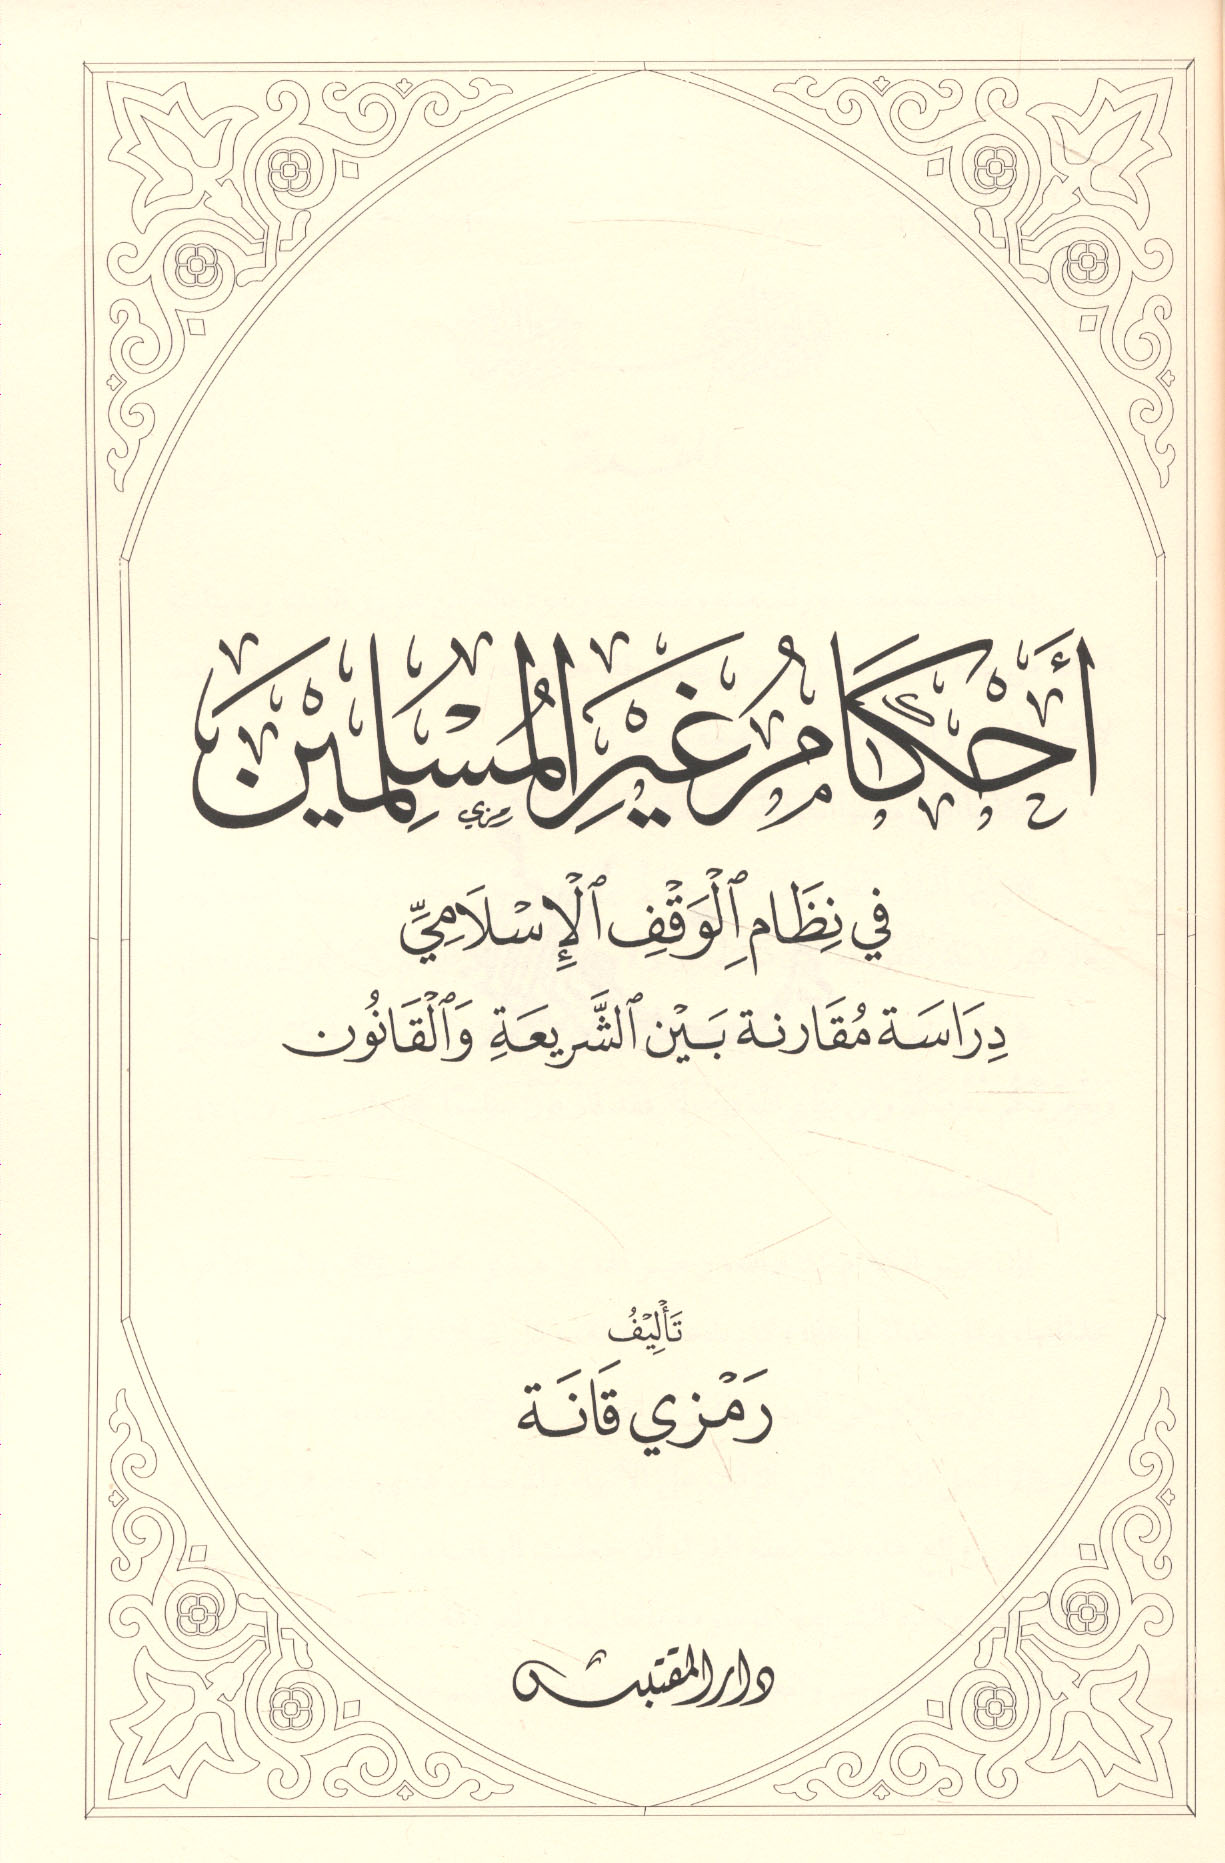 أَحْكَامُ غَيْرِ الْمُسْلِمِيْنَ
رمزي
فِي نِظَامِ ٱلْوَقْفِ ٱلْإِسْلَامِيِّ
دِرَاسَة مُقَارنة بَيْن ٱلشَّرِيعَةِ وَٱلْقَانُون
تَأْلِيْفُ
رَمْزي قَانَة
دار المقتبس